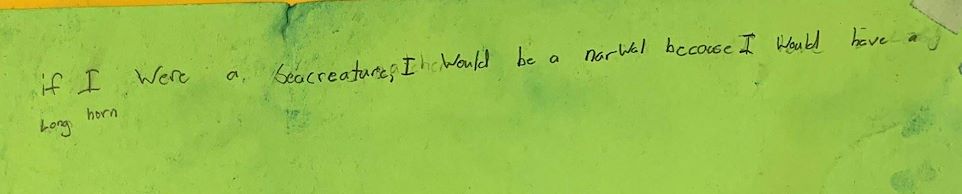 if I Were a seacreature, I Would be a narwal becouse I Would have a
Long horn